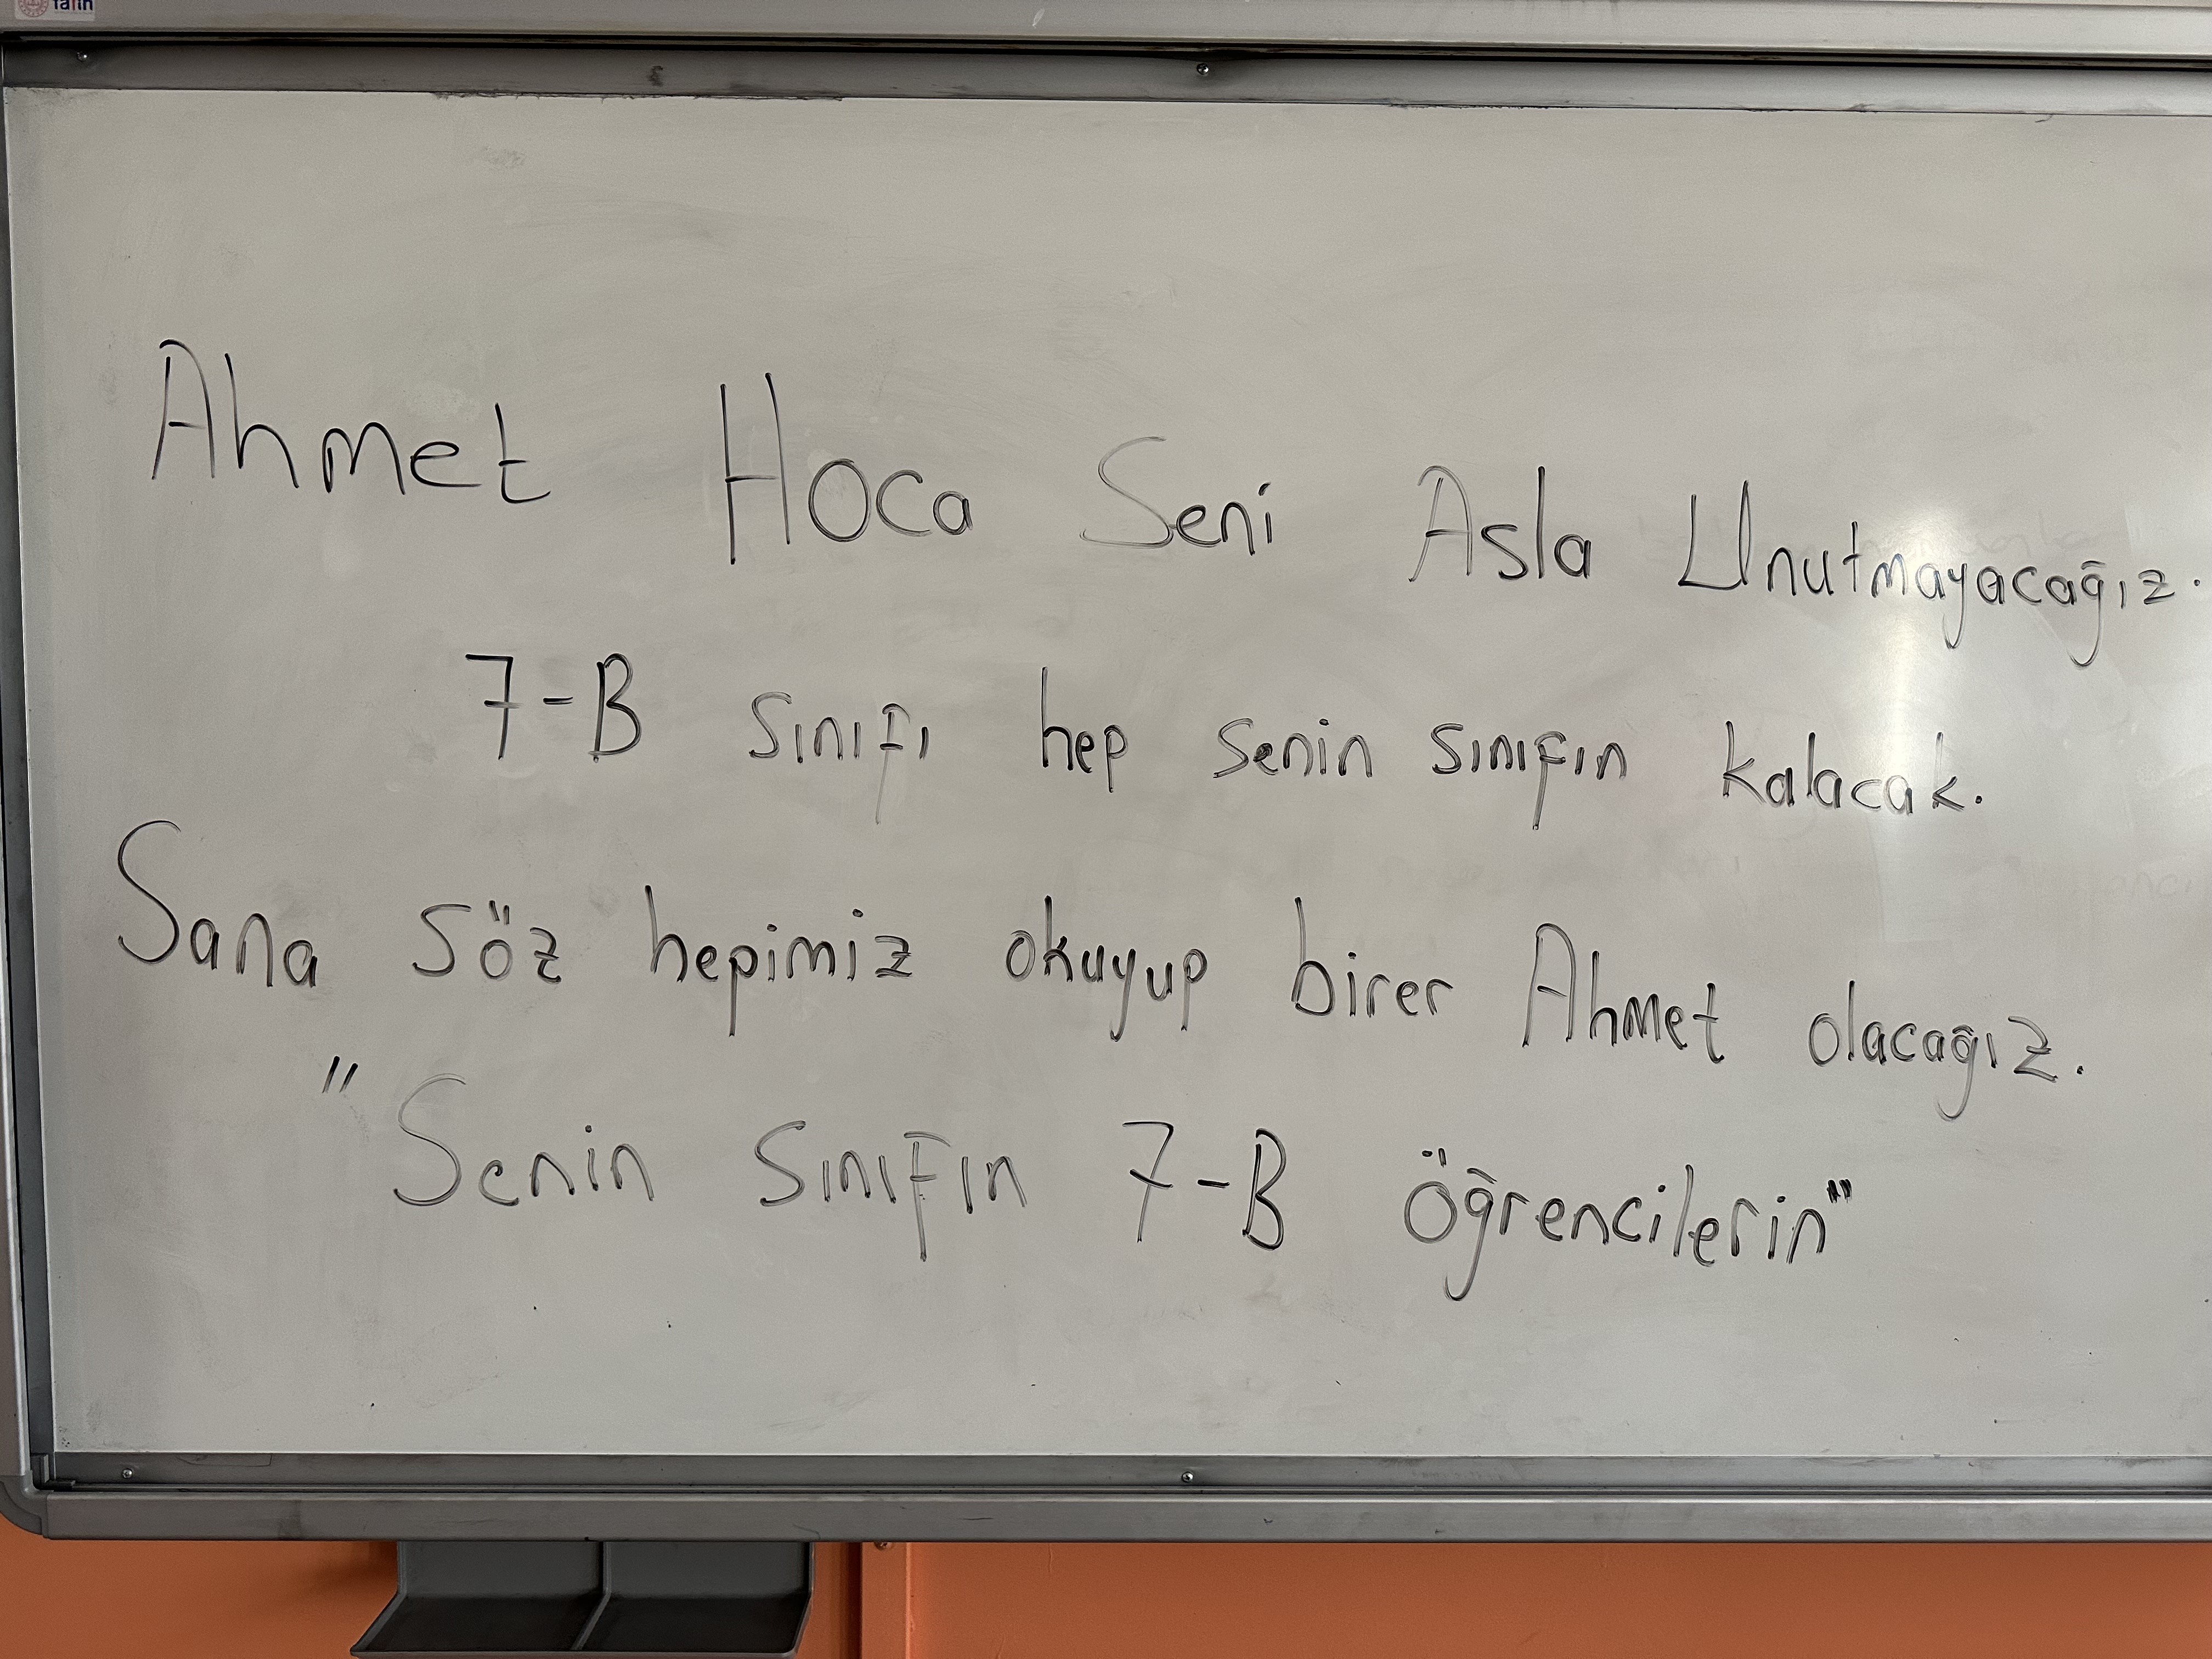 fatih
Ahmet Hoca Seni Asla Unutmayacağız.
7-B sınıfı hep senin sınıfın kalacak.
Sana söz hepimiz okuyup birer Ahmet olacağız.
"Senin sınıfın 7-B öğrencilerin"